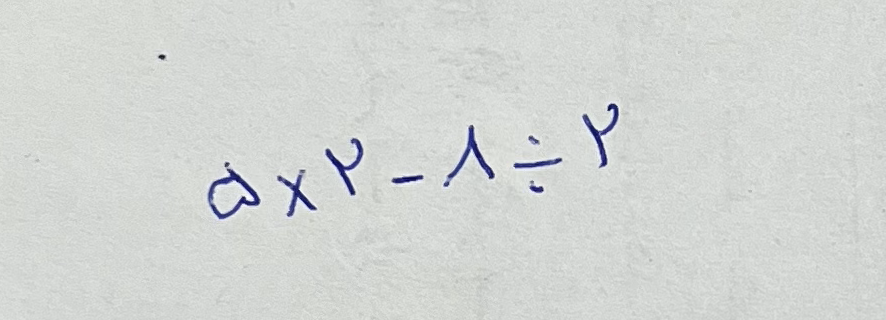 ۵ × ۲ - ۸ ÷ ۲